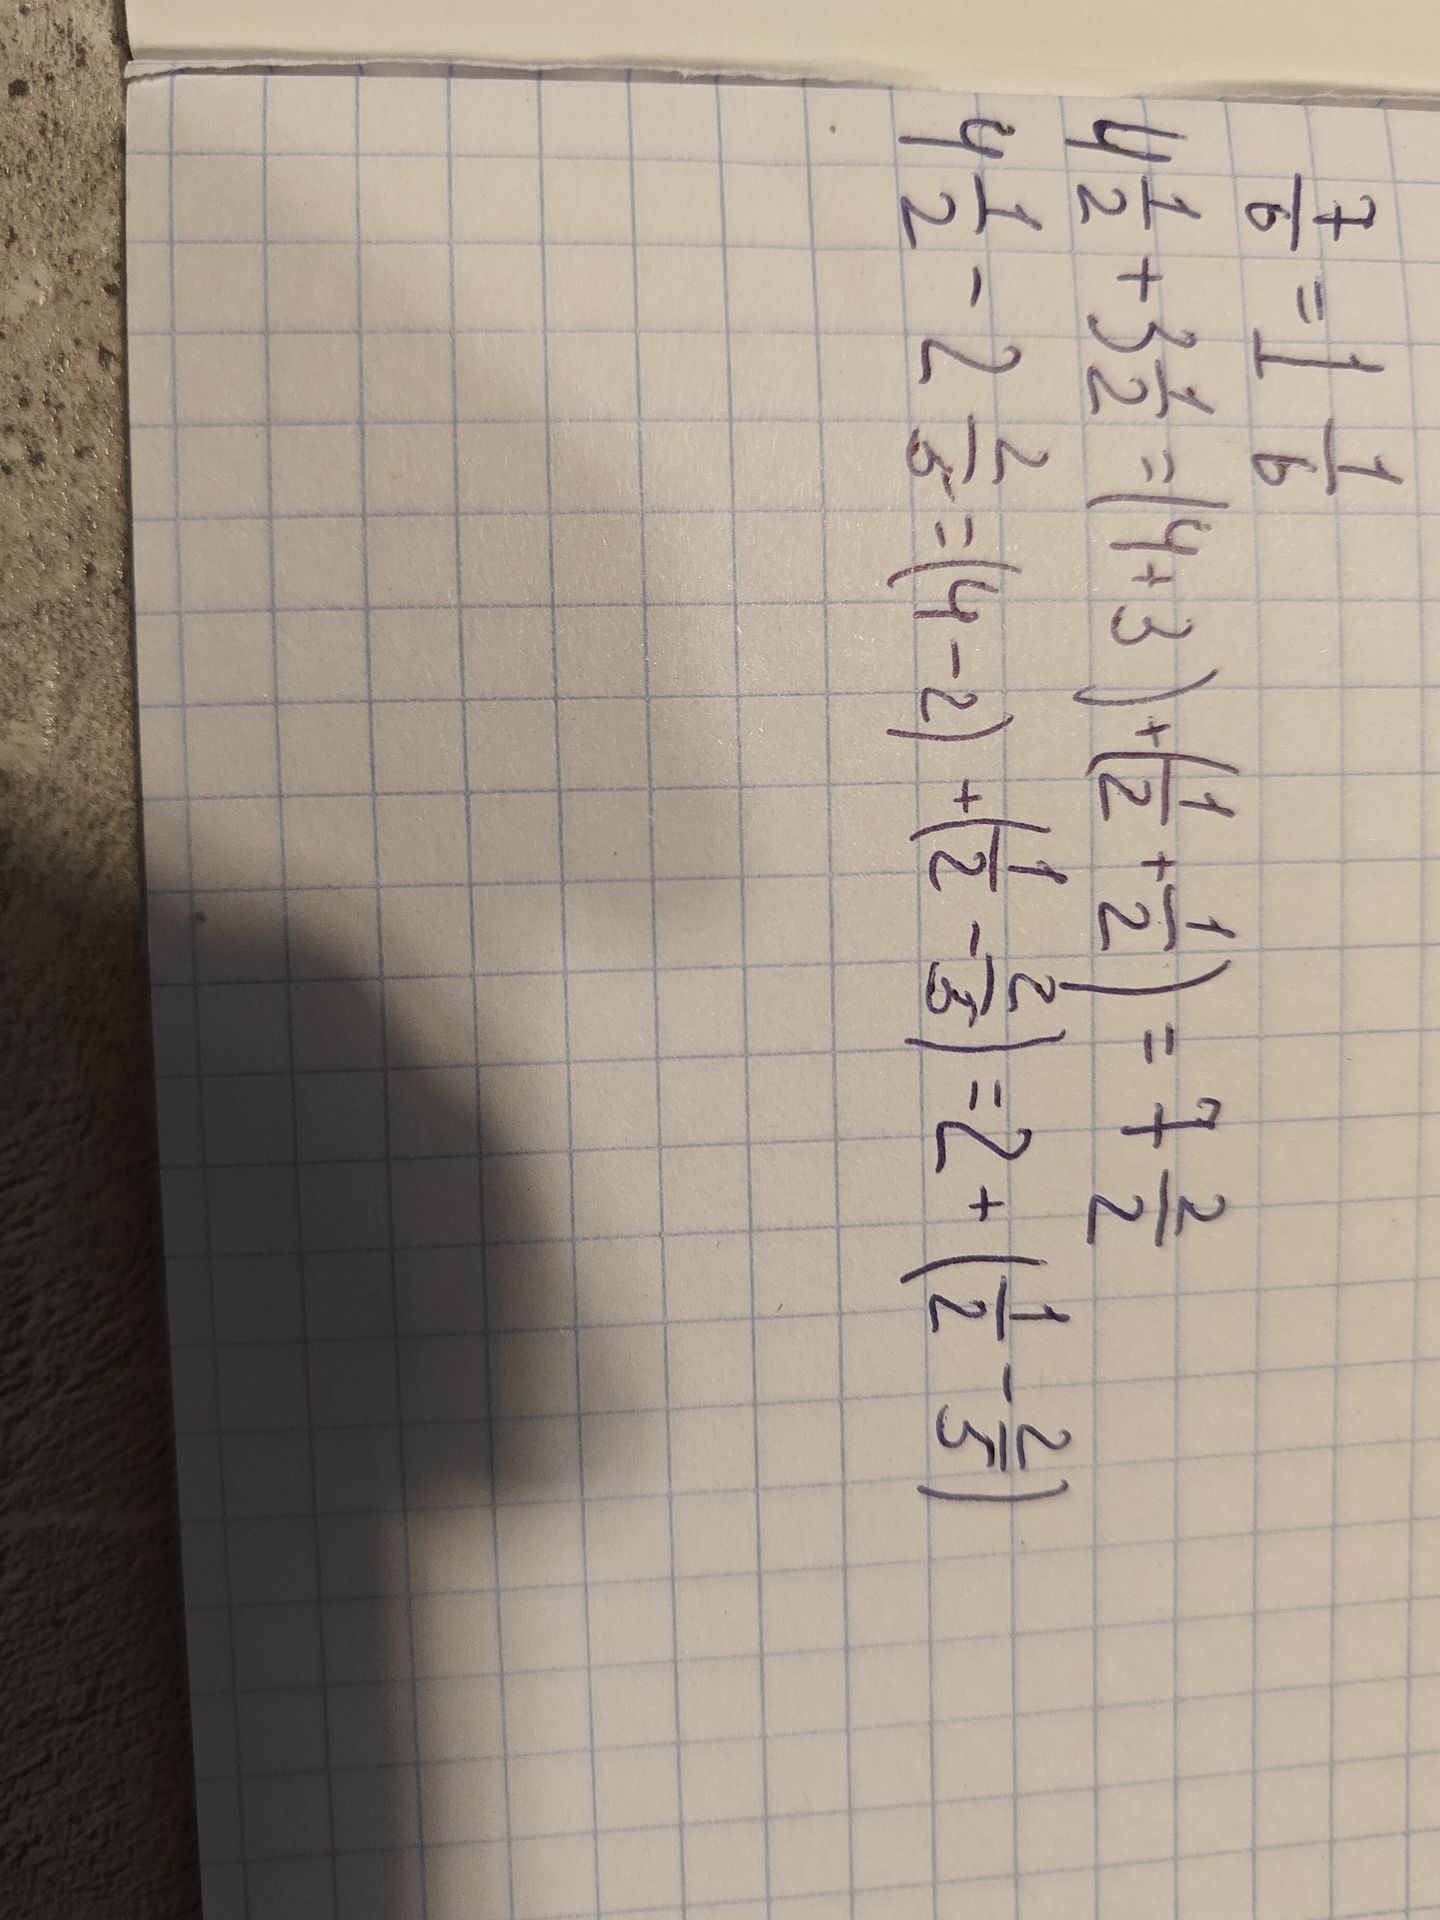 7/6 = 1 1/6
4 1/2 + 3 1/2 = (4+3) + (1/2 + 1/2) = 7 2/2
4 1/2 - 2 2/5 = (4-2) + (1/2 - 2/5) = 2 + (1/2 - 2/5)